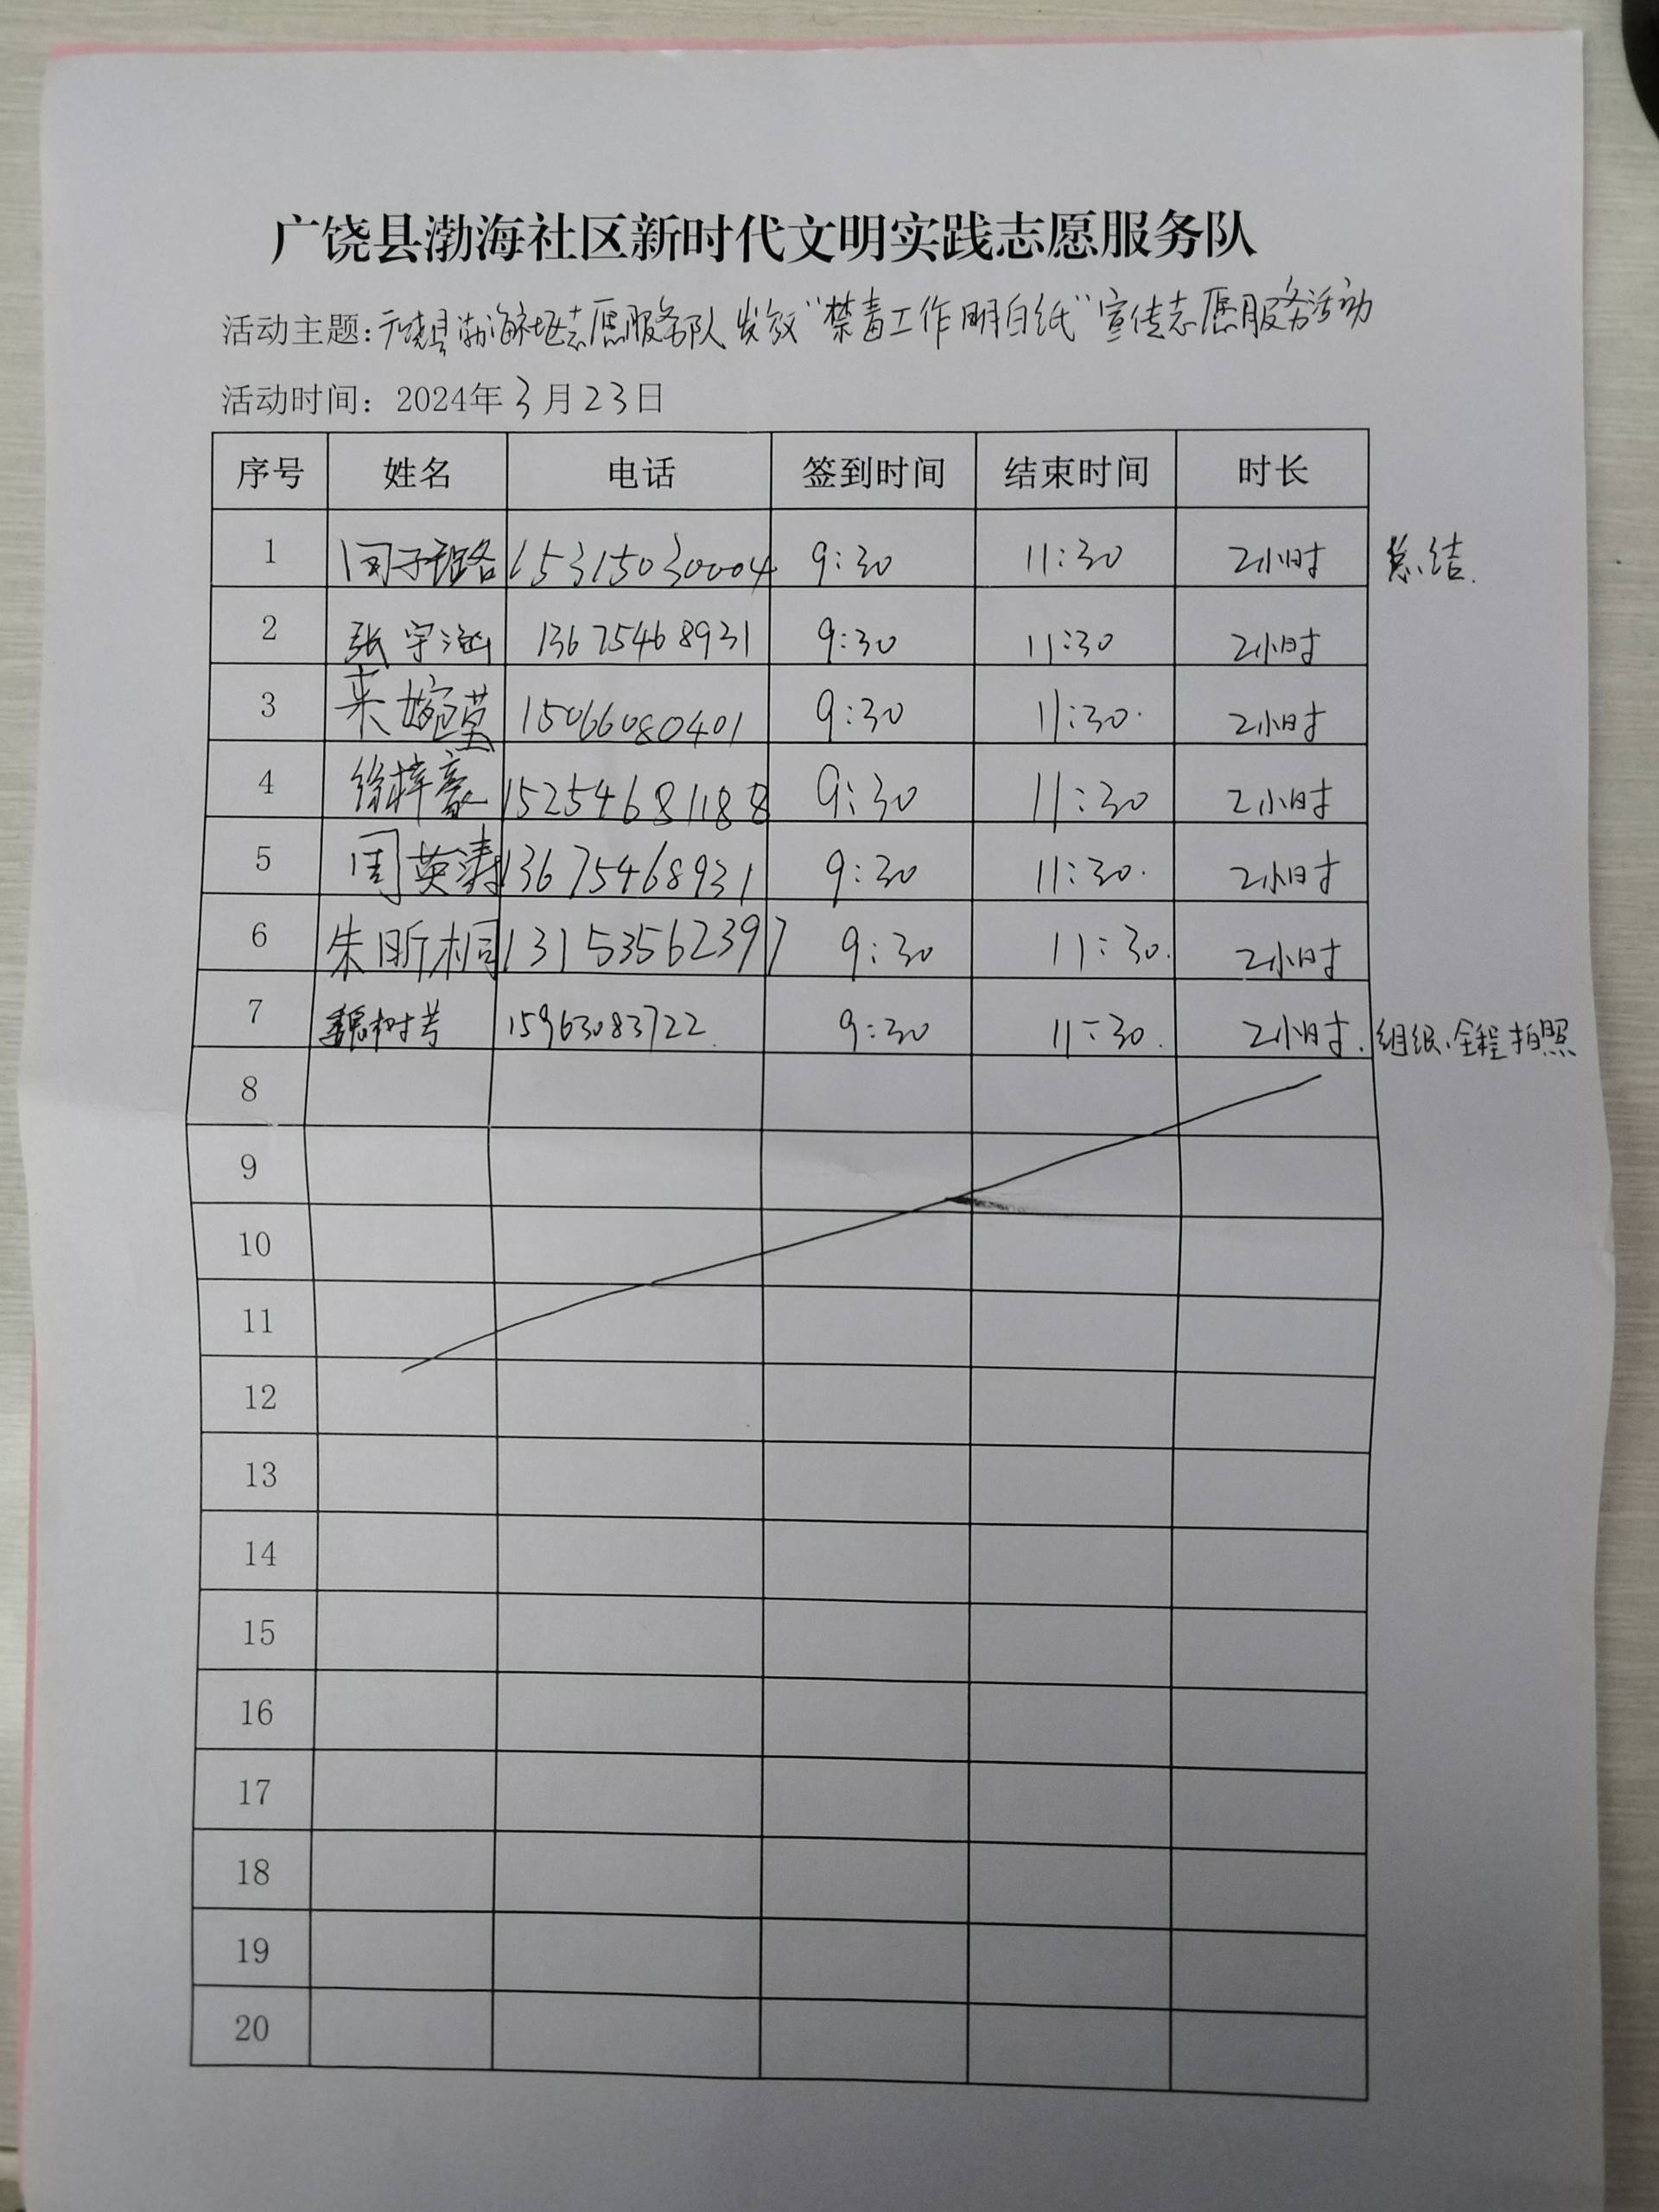 广饶县渤海社区新时代文明实践志愿服务队
活动主题:广饶县渤海社区志愿服务队发放"禁毒工作明白纸"宣传志愿服务活动
活动时间: 2024年3月23日
序号 姓名 电话 签到时间 结束时间 时长
1 15315030004 9:30 11:30 2小时 总结.
2 张宇涵 13675468931 9:30 11:30 2小时
3 15066080401 9:30 11:30. 2小时
4 徐梓豪 15254681188 9:30 11:30 2小时
5 周英涛 13675468931 9:30 11:30. 2小时
6 朱昕桐 13153562397 9:30 11:30. 2小时
7 魏树芳 15963083722. 9:30 11:30. 2小时. 组织、全程拍照
8
9
10
11
12
13
14
15
16
17
18
19
20